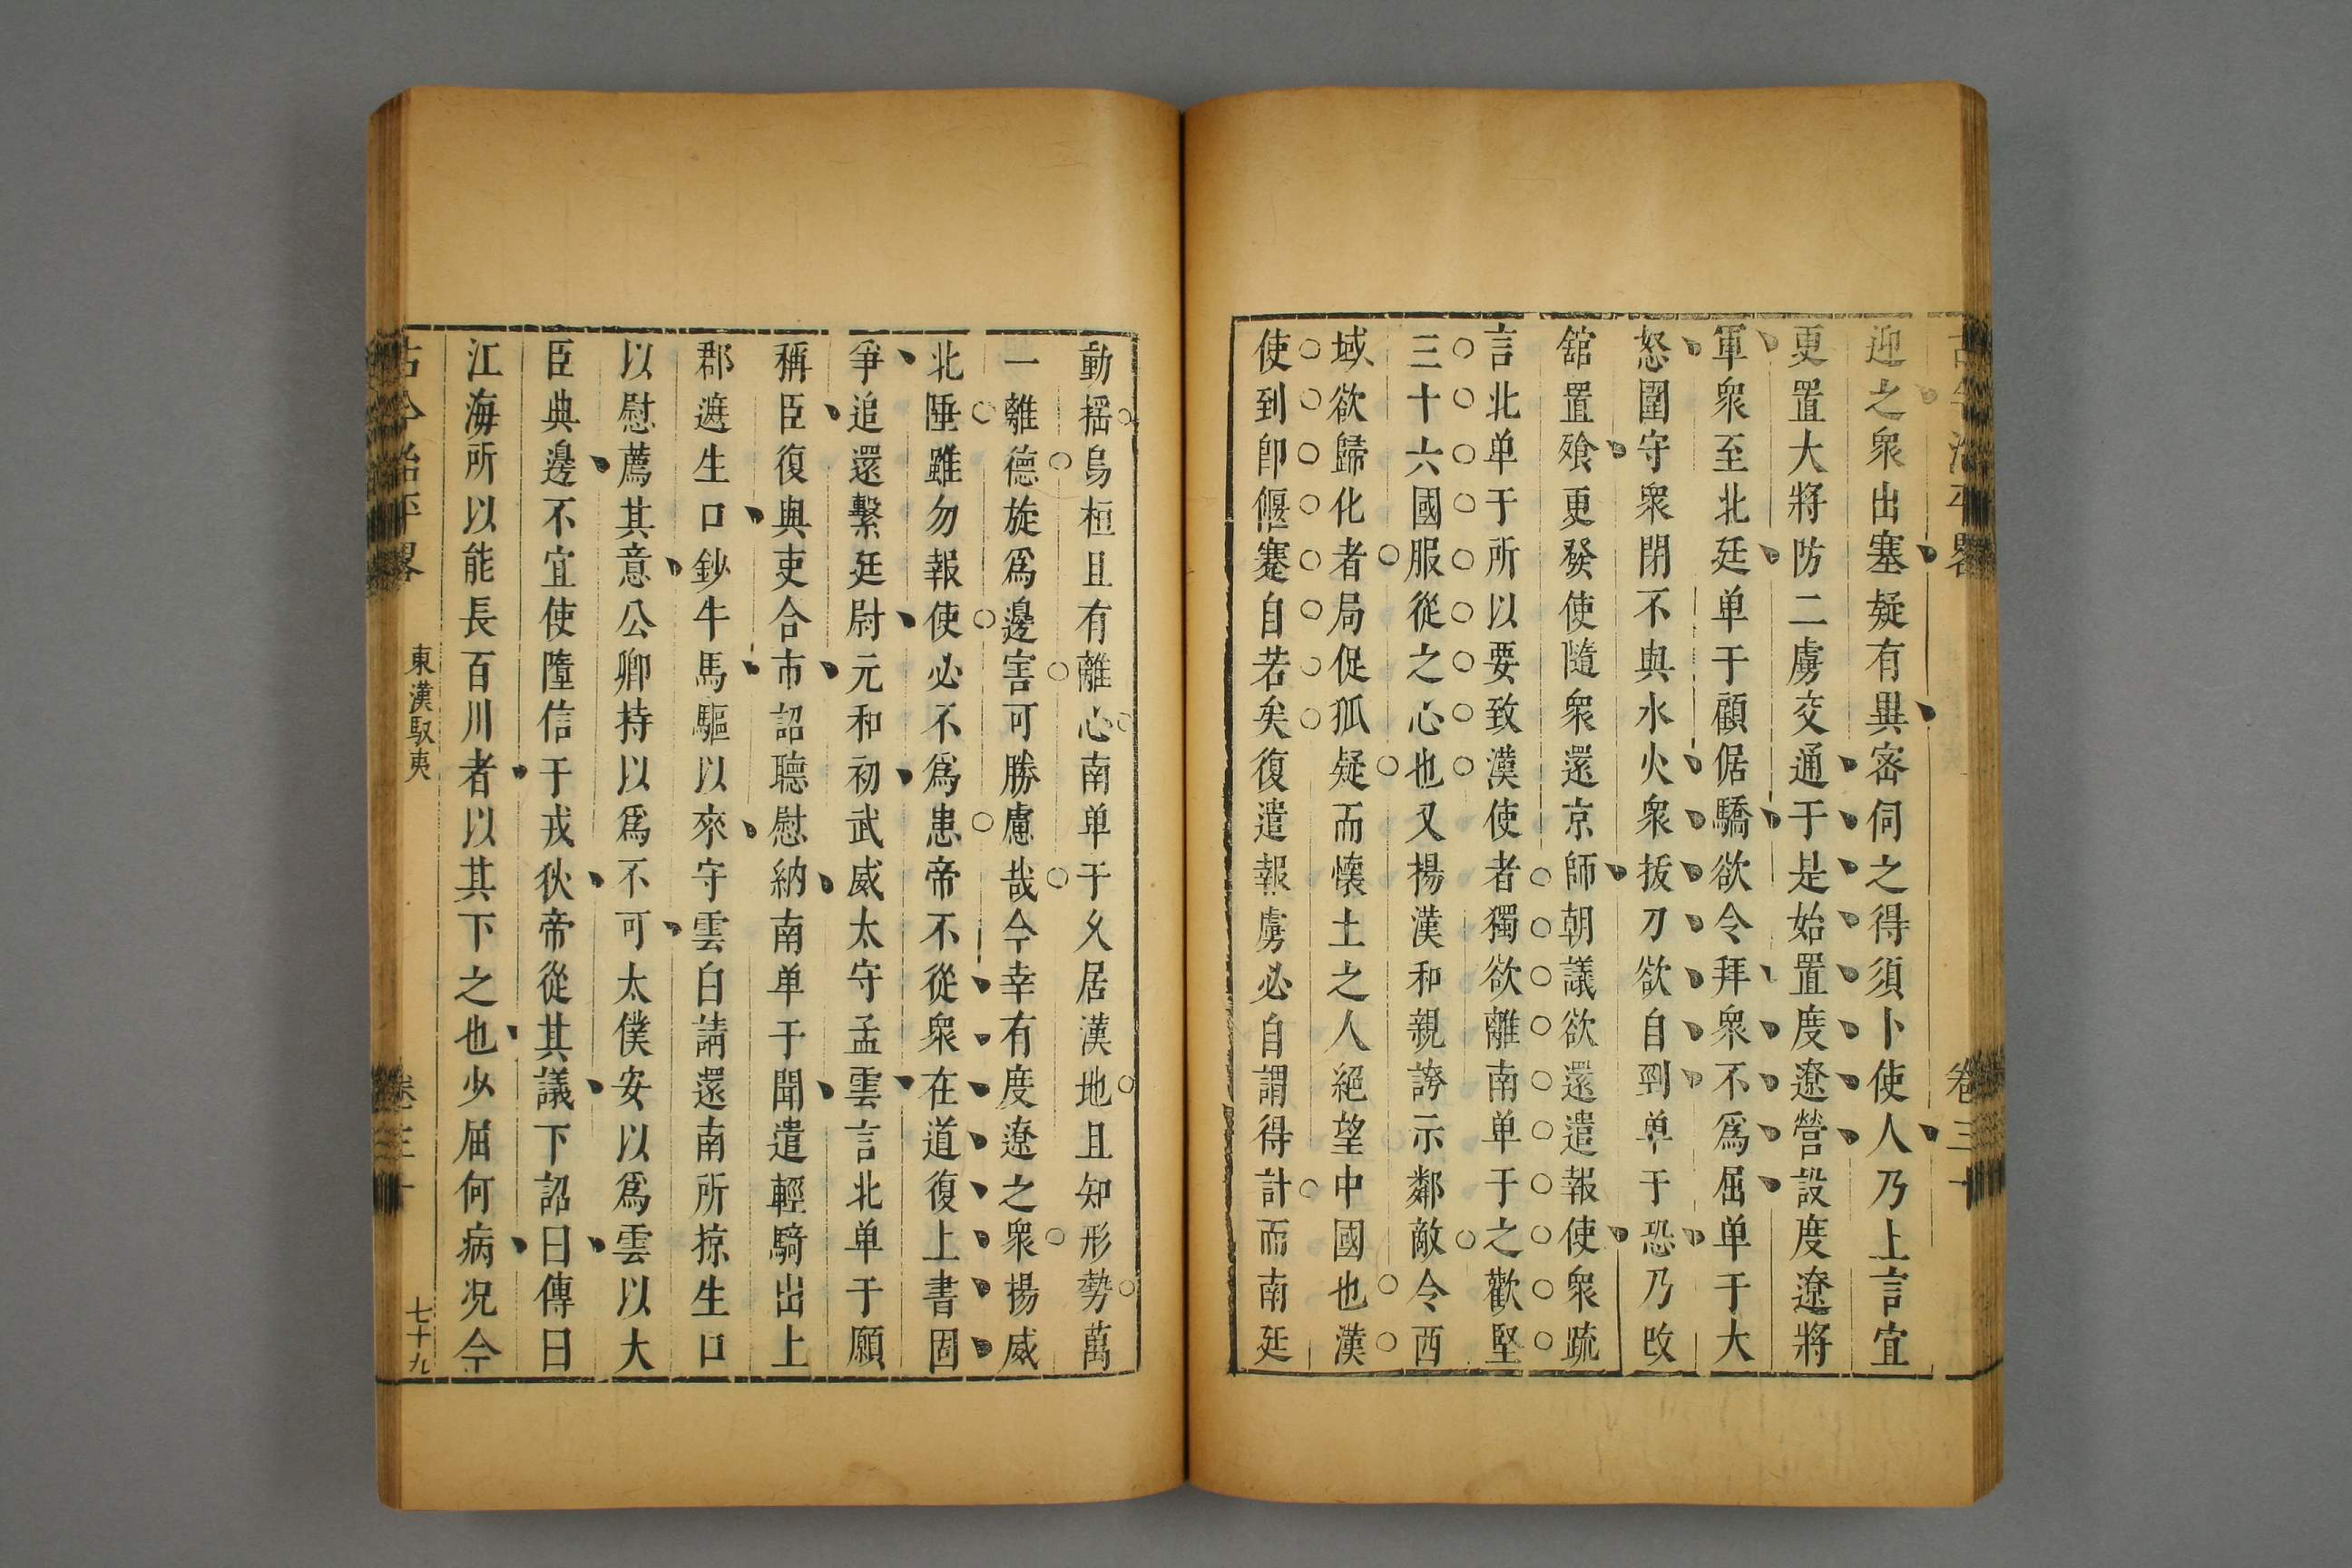 古今治平畧
卷三十
迎之衆出塞疑有異密伺之得須卜使人乃上言宜
更置大將防二虜交通于是始置度遼營設度遼將
軍衆至北廷单于顧倨驕欲令拜衆不爲屈单于大
怒圍守衆閉不與水火衆拔刀欲自剄单于恐乃改
舘置飱更發使隨衆還京師朝議欲還遣報使衆疏
言北单于所以要致漢使者獨欲離南单于之歡堅
三十六國服從之心也又揚漢和親誇示鄰敵令西
域欲歸化者局促狐疑而懷土之人絕望中國也漢
使到卽偃蹇自若矣復遣報虜必自謂得計而南廷
動揺烏桓且有離心南单于乆居漢地且知形勢萬
一離德旋爲邊害可勝慮哉今幸有度遼之衆揚威
北陲雖勿報使必不爲患帝不從衆在道復上書固
爭追還繫廷尉元和初武威太守孟雲言北单于願
稱臣復與吏合市詔聽慰納南单于聞遣輕騎出上
郡遮生口鈔牛馬驅以來守雲白請還南所掠生口
以慰薦其意公卿持以爲不可太僕安以爲雲以大
臣典邊不宜使墮信于戎狄帝從其議下詔曰傳曰
江海所以能長百川者以其下之也少屈何病况今
古今治平畧
東漢馭夷
卷三十
七十九